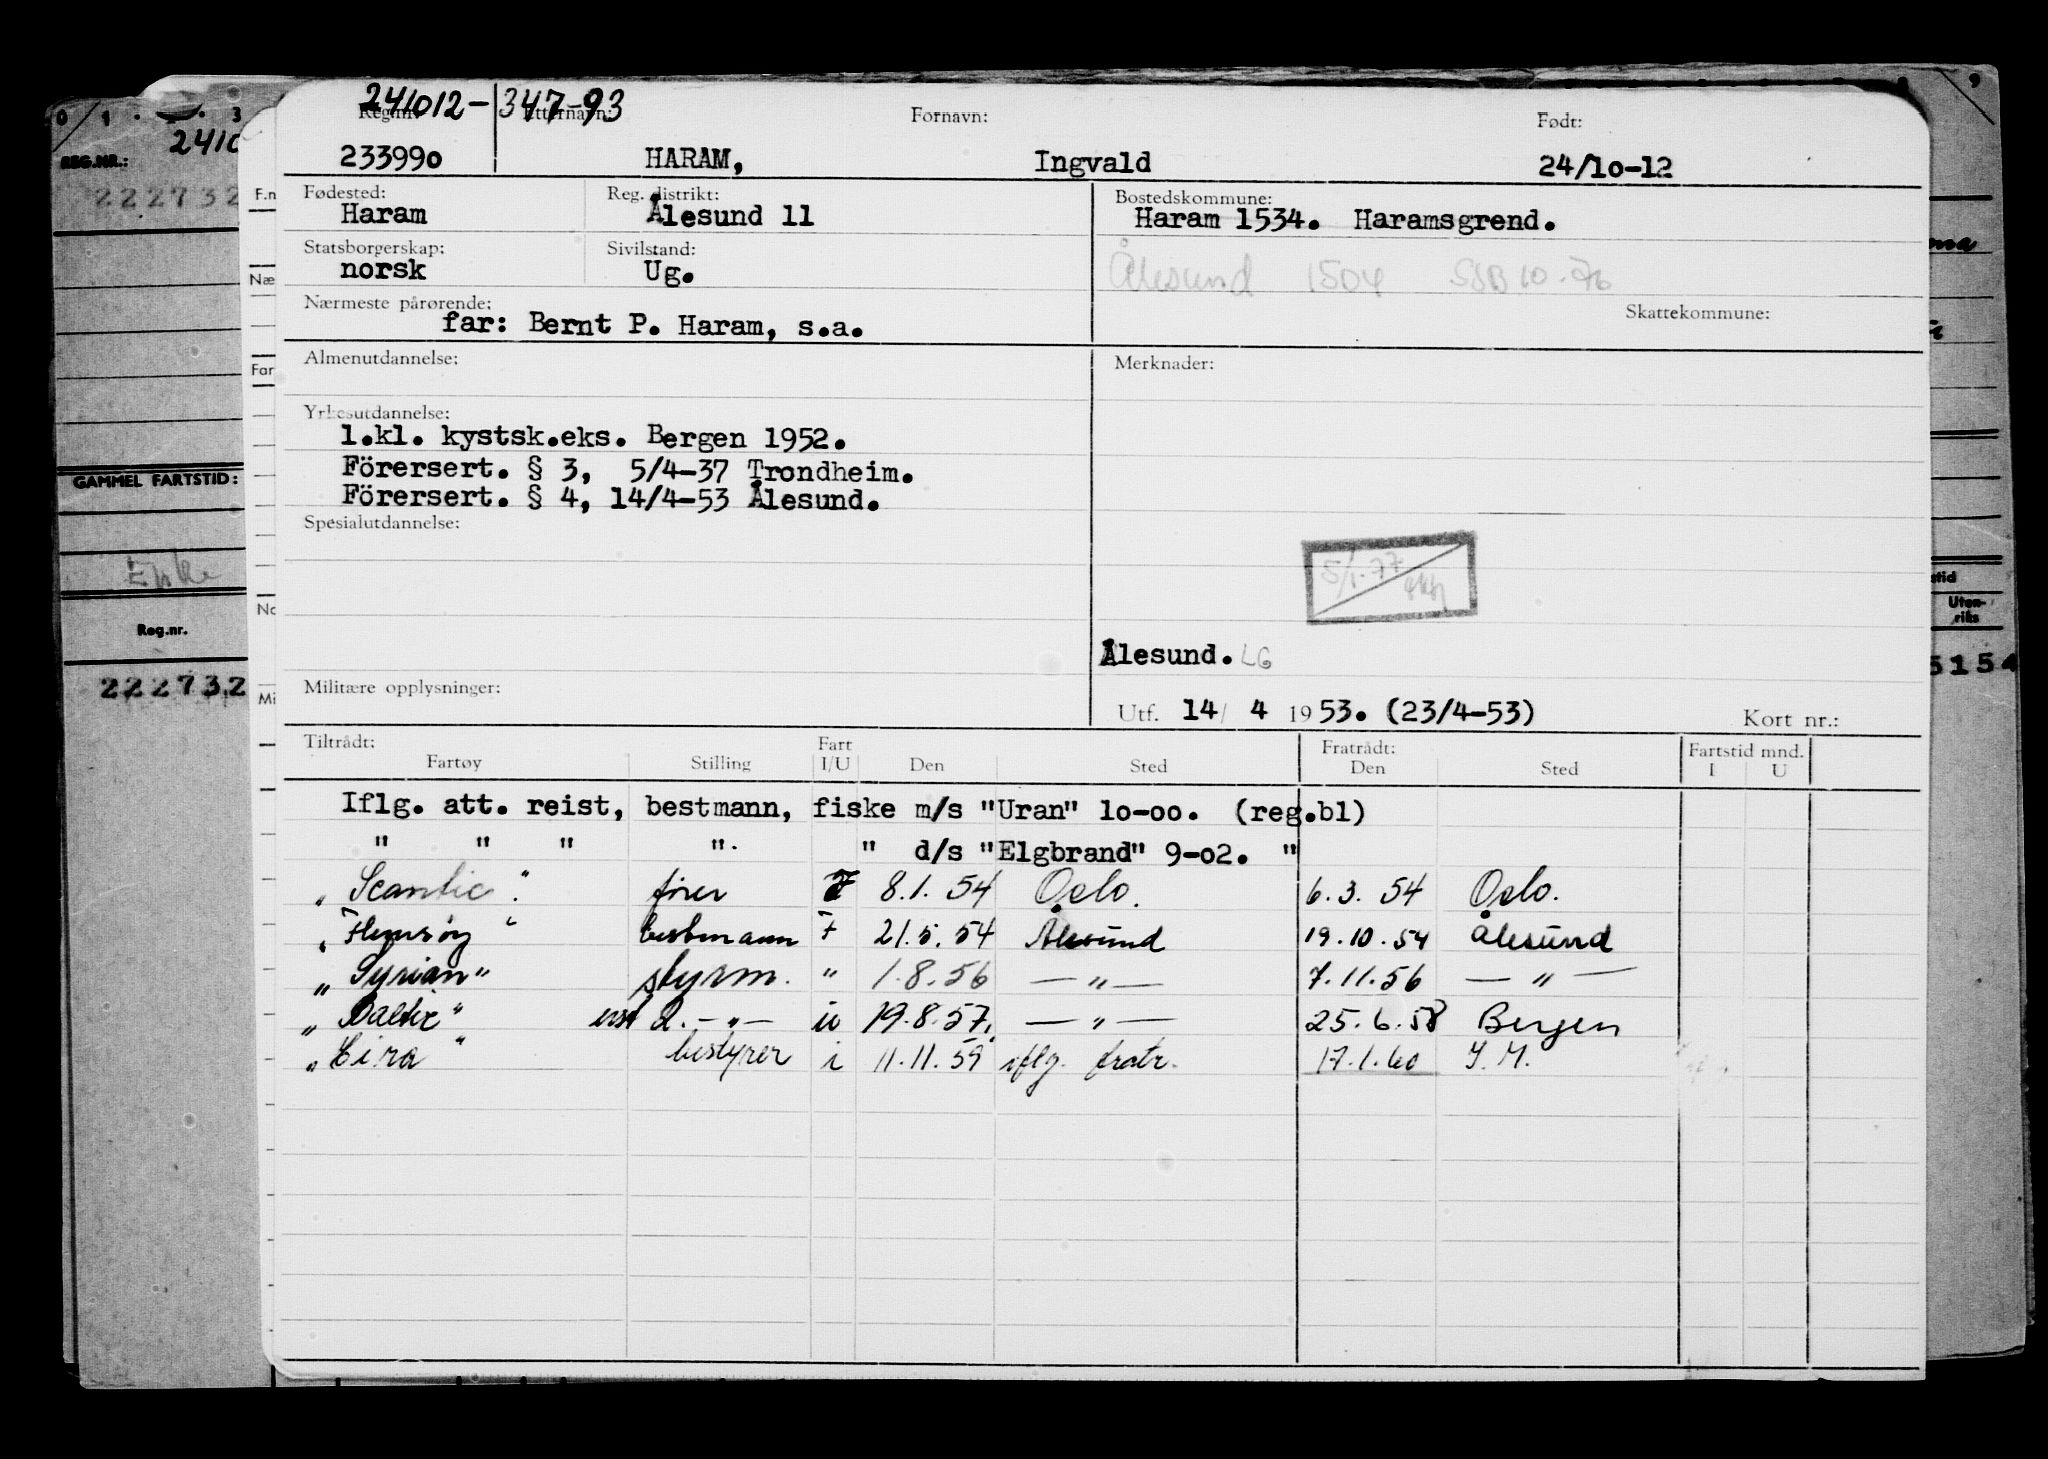 241012-347-93
Reg.nr. Etternavn: Fornavn: Født:
233990 HARAM, Ingvald 24/10-12
Fødested: Reg. distrikt: Bostedskommune:
Haram Ålesund 11 Haram 1534. Haramsgrend.
Statsborgerskap: Sivilstand:
norsk Ug. Ålesund 1504 SSB 10-76
Nærmeste pårørende: Skattekommune:
far: Bernt P. Haram, s.a.
Almenutdannelse: Merknader:
Yrkesutdannelse:
1.kl. kystsk.eks. Bergen 1952.
Förersert. § 3, 5/4-37 Trondheim.
Förersert. § 4, 14/4-53 Ålesund.
Spesialutdannelse:
5/1-77
Ålesund. LG
Militære opplysninger:
Utf. 14/ 4 1953. (23/4-53) Kort nr.:
Tiltrådt: Fart Fratrådt: Fartstid mnd.
Fartøy Stilling I/U Den Sted Den Sted I U
Iflg. att. reist, bestmann, fiske m/s "Uran" 10-00. (reg.bl)
" " " " " d/s "Elgbrand" 9-02. "
"Scantic". fører F 8.1. 54 Oslo. 6.3. 54 Oslo.
"Flemsøy" bestmann F 21.5.54 Ålesund 19.10.54 Ålesund
"Syrian" styrm. " 1.8.56 — " — 7.11.56 — " —
"Baltic" 2. — " — u 19.8.57. — " — 25.6.58 Bergen
"Eira" bestyrer i 11.11.59 iflg. fratr. 17.1.60 Y.M.
0 1 3
2410
REG.NR.:
222732
GAMMEL FARTSTID:
Reg.nr.
222732
F.n
Næ
Far
No
Mi
9
stid
Uten-
riks
5154